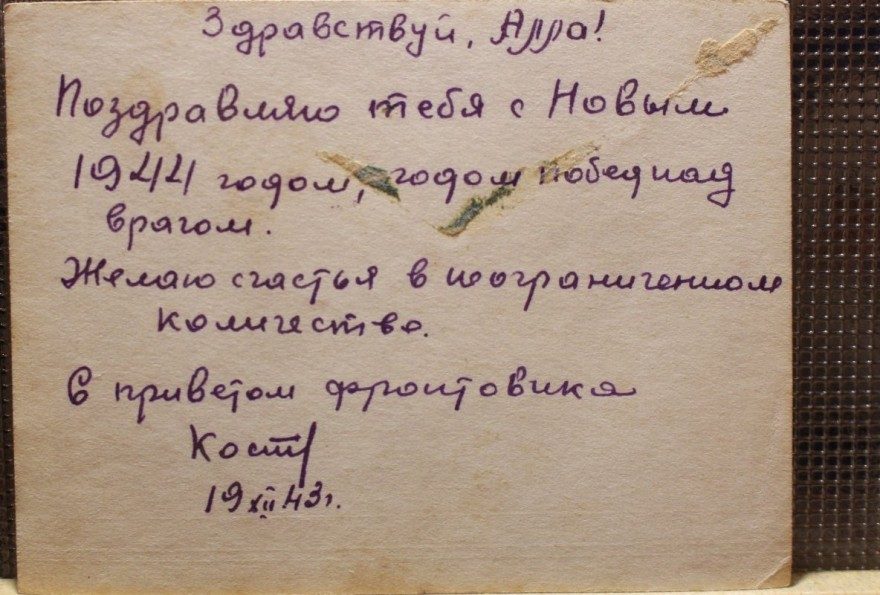 Здравствуй, Алла!
Поздравляю тебя с Новым
1944 годом, годом побед над
врагом.
Желаю счастья в неограниченном
количестве.
С приветом фронтовика
Костя
19 XII 43 г.